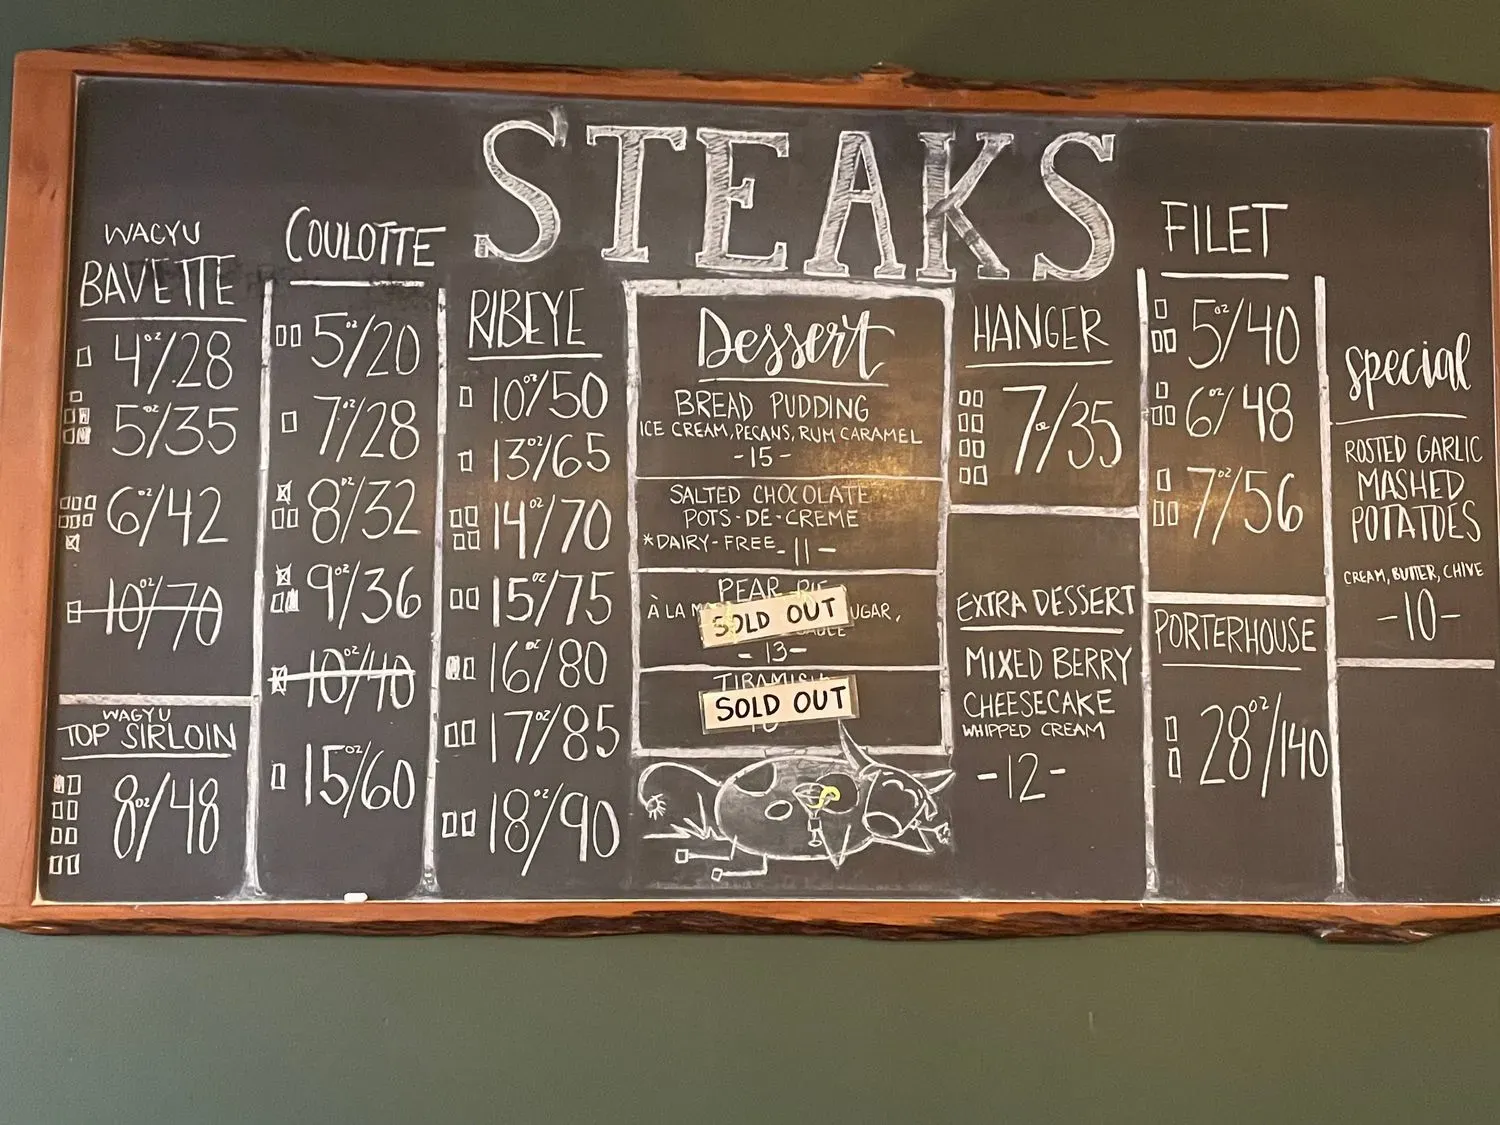 STEAKS
WAGYU
BAVETTE
4oz/28
5oz/35
6oz/42
10oz/70
WAGYU
TOP SIRLOIN
8oz/48
COULOTTE
5oz/20
7oz/28
8oz/32
9oz/36
10oz/40
15oz/60
RIBEYE
10oz/50
13oz/65
14oz/70
15oz/75
16oz/80
17oz/85
18oz/90
Dessert
BREAD PUDDING
ICE CREAM, PECANS, RUM CARAMEL
-15-
SALTED CHOCOLATE
POTS-DE-CREME
*DAIRY-FREE -11-
PEAR PIE
À LA
SOLD OUT
-13-
TIRAMISU
SOLD OUT
HANGER
7oz/35
EXTRA DESSERT
MIXED BERRY
CHEESECAKE
WHIPPED CREAM
-12-
FILET
5oz/40
6oz/48
7oz/56
PORTERHOUSE
28oz/140
Special
ROSTED GARLIC
MASHED
POTATOES
CREAM, BUTTER, CHIVE
-10-